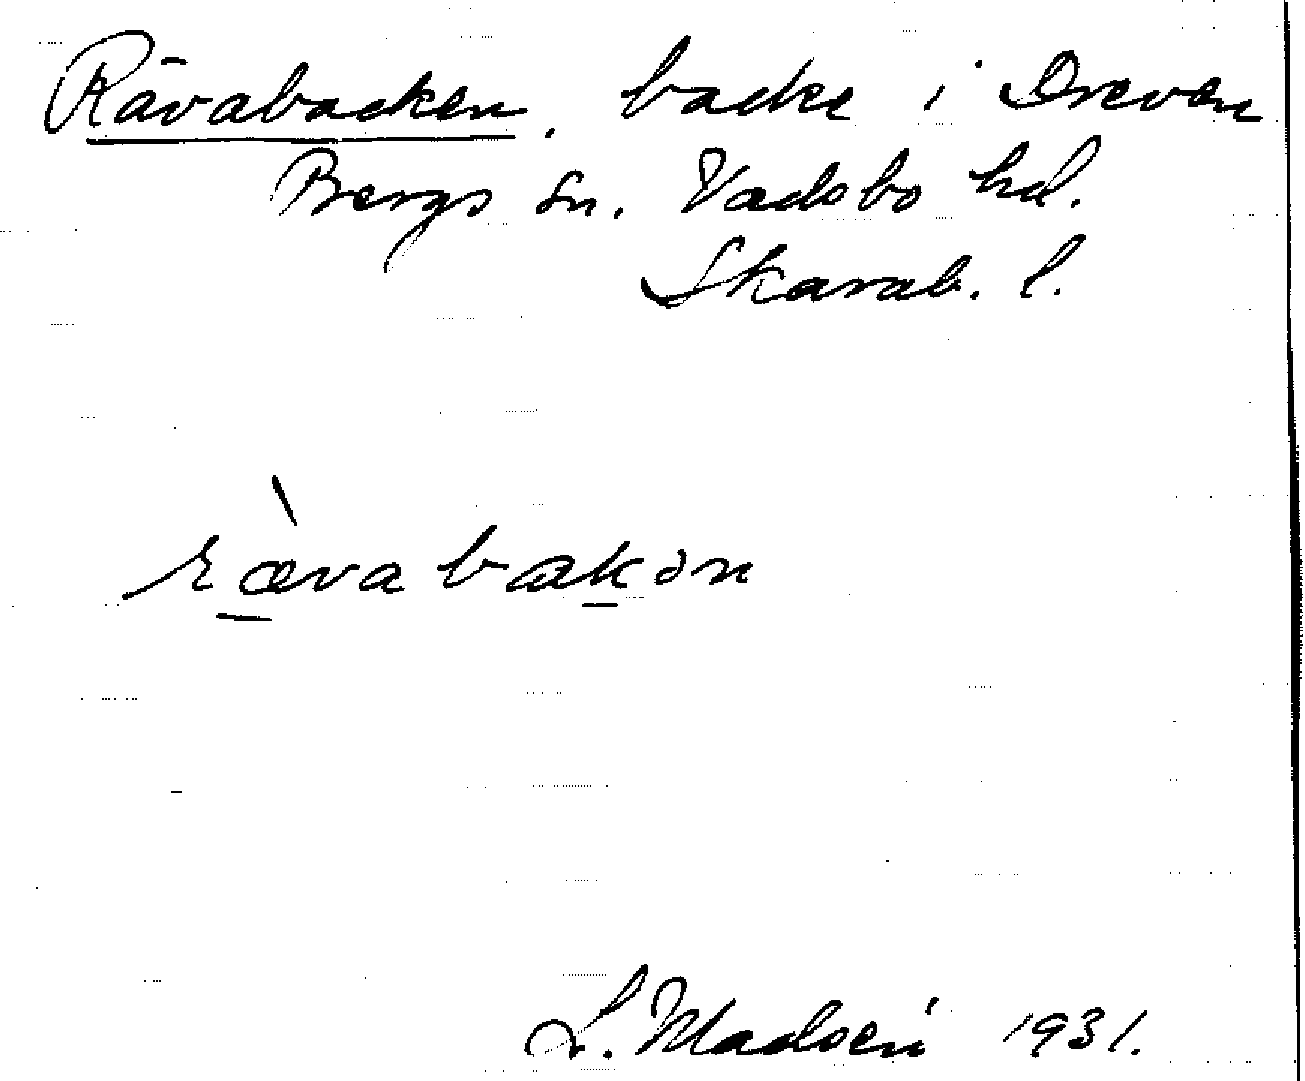 Rävabacken, backe i Dreven
Bergs sn. Vadsbo hd.
Skarab. l.
rævabakən
L. Madsén 1931.